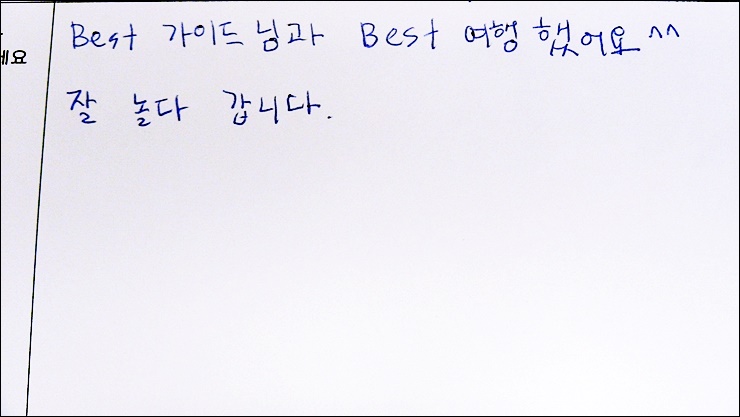 Best 가이드님과 Best 여행 했어요 ^^
세요
잘 놀다 갑니다.